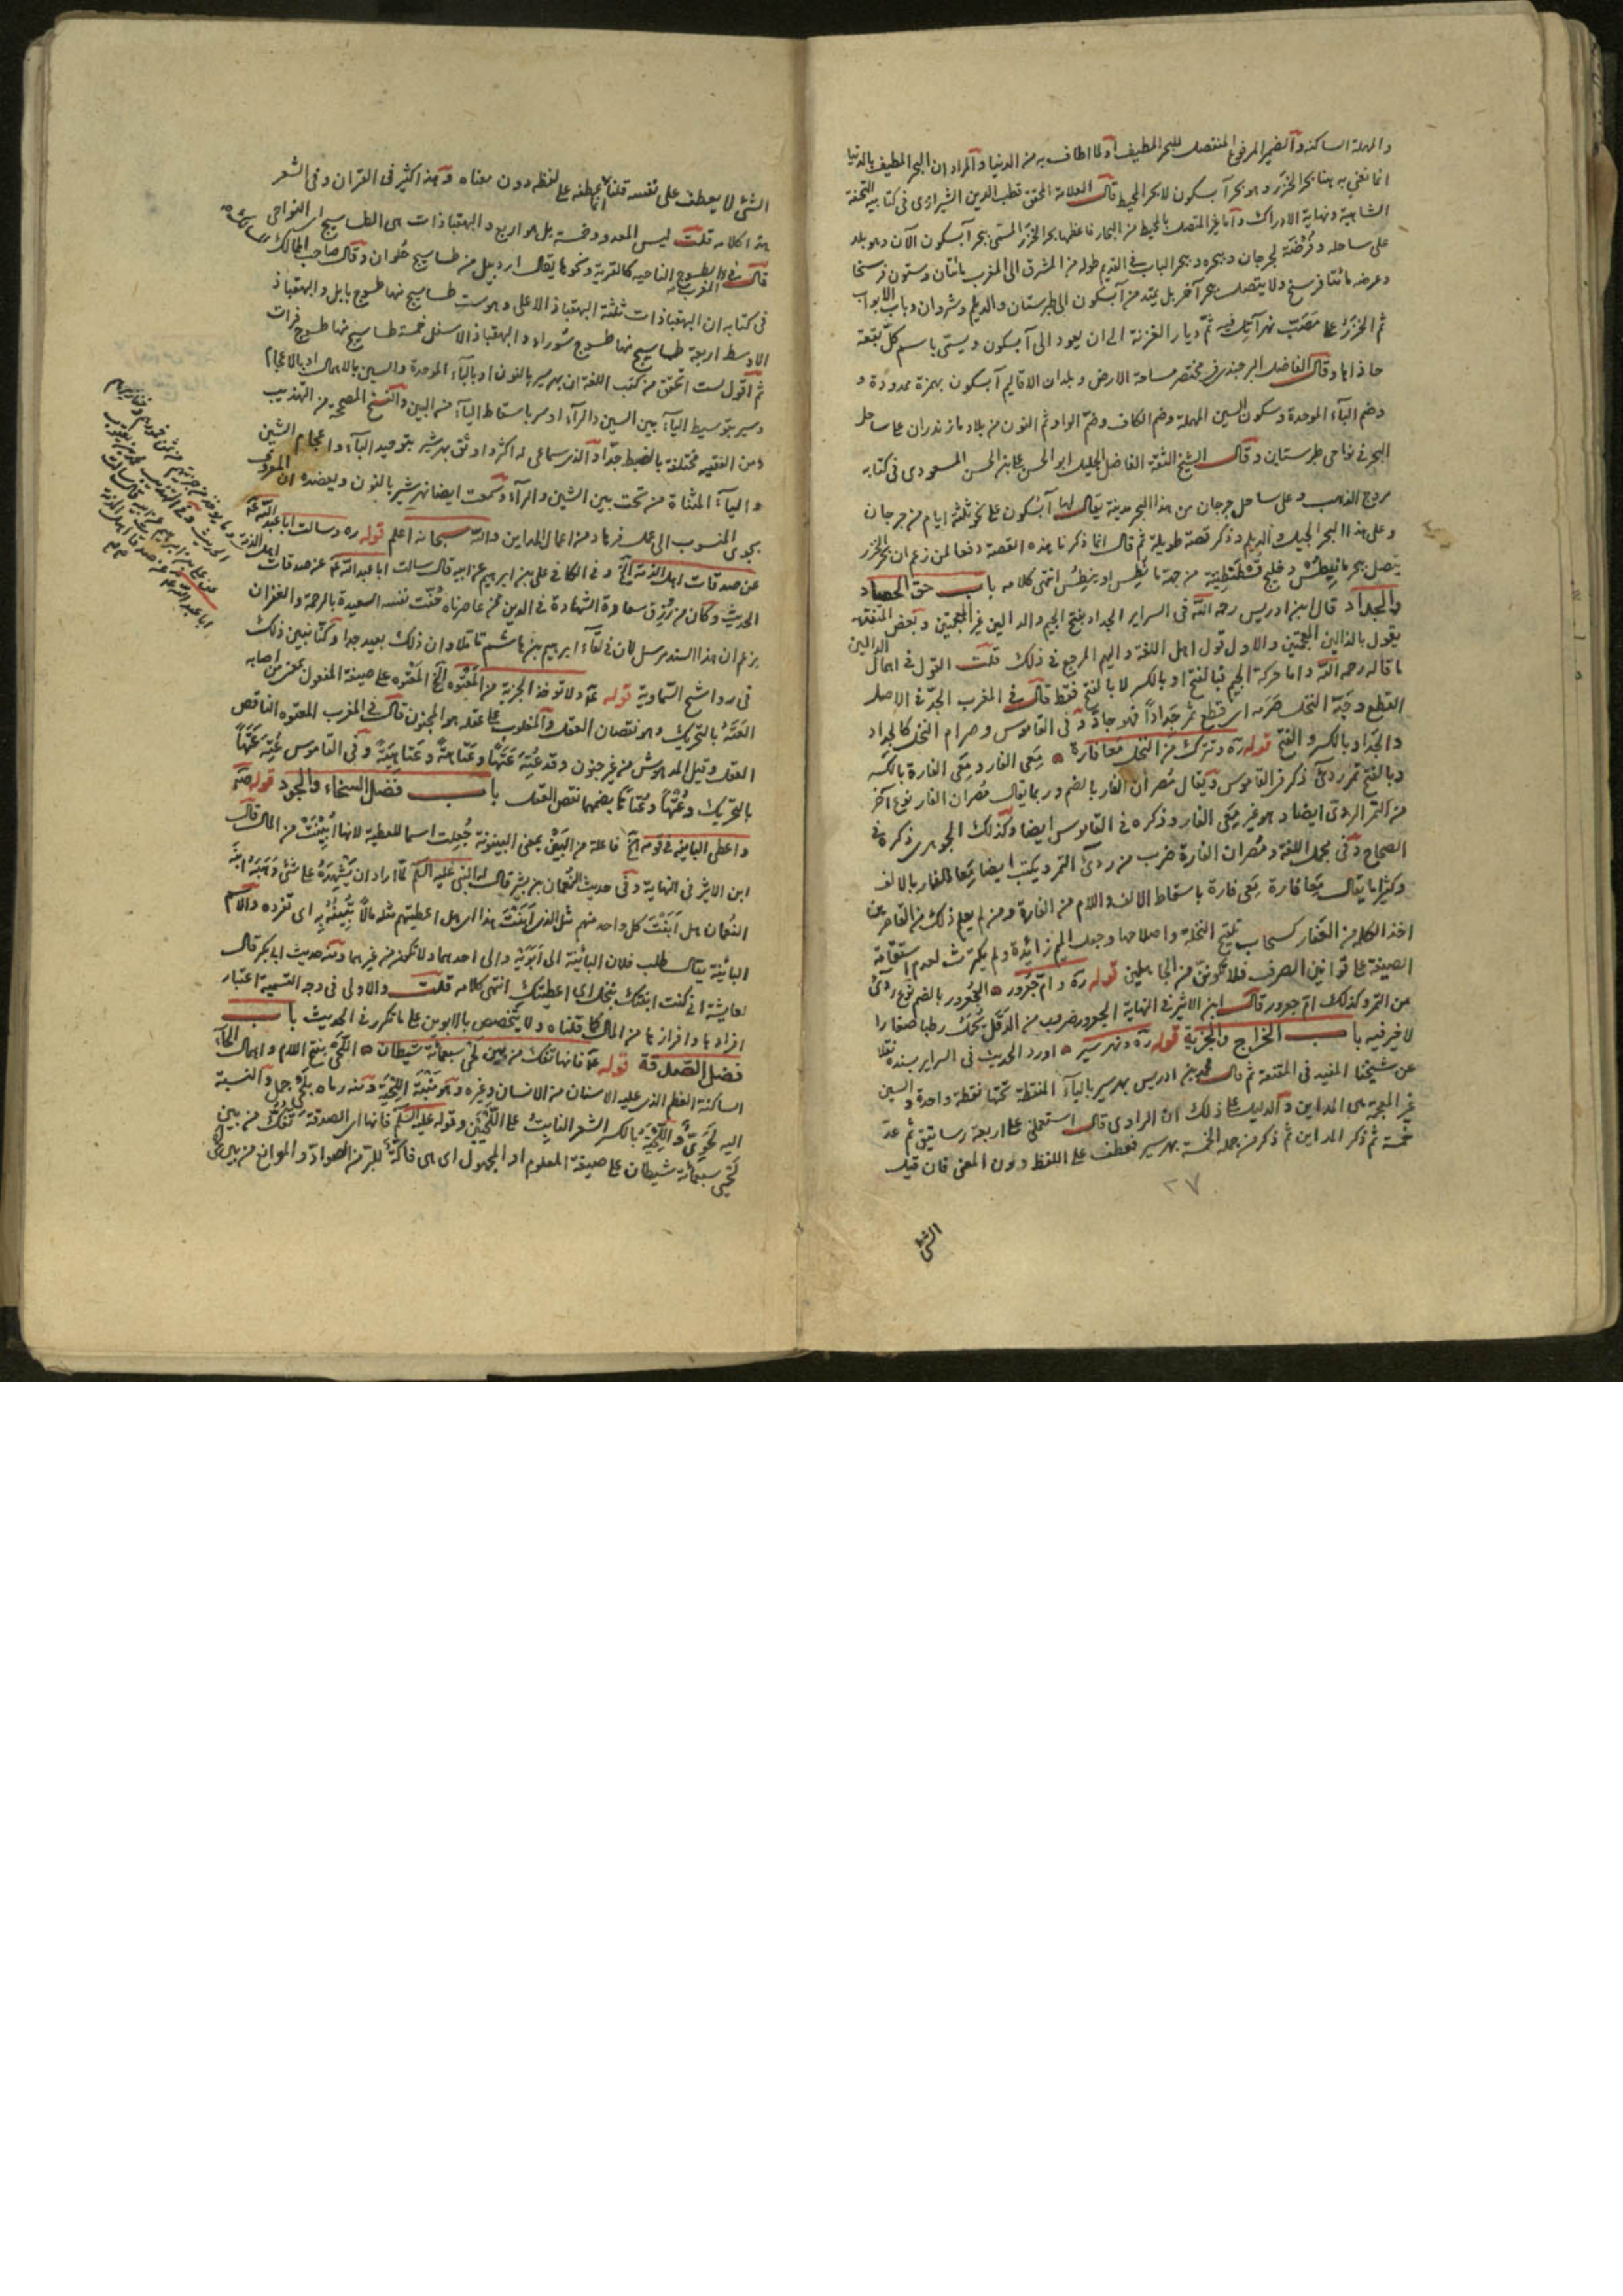 والمهلة الساكنة والضمير المرفوع المنتصل للبحر المطيف او لما اطاف به من الدنيا والمراد ان البحر المطيف بالدنيا
انما نعني به هنا بحر الخزر وهو بحر آبسكون لا بحر المحيط قال العلامة المحقق قطب الدين الشيرازى فى كتابيه التحفة
الشاهية ونهاية الادراك واما غير المتصل بالمحيط من البحار فاعظمها بحر الخزر المسمى ببحر آبسكون الآن وهو بلد
على ساحله وفرضة لجرجان وببحره وببحر الباب فى القديم طوله من المشرق الى المغرب مائتان وستون فرسخا
وعرضه مائتا فرسخ ولا يتصل ببحر آخر بل يمتد من آبسكون الى طبرستان والديلم وشروان وباب الابواب
ثم الخزر على مصب نهر آتل ثم ديار الغزنة الى ان يعود الى آبسكون ويسمى باسم كل بقعة
حاذاها وقال الفاضل البرجندى فى مختصر مساحة الارض وبلدان الاقاليم آبسكون بهمزة ممدودة و
وضم الباء الموحدة وسكون السين المهملة وضم الكاف وضم الواو ثم النون من بلاد مازندران على ساحل
البحر فى نواحى طبرستان وقال الشيخ الثقة الفاضل الجليل ابو الحسن على بن الحسن المسعودى فى كتابه
مروج الذهب وعلى ساحل جرجان من هذا البحر مدينة يقال لها آبسكون على نحو ثلثة ايام من جرجان
وعلى هذا البحر الجيل والديلم وذكر قصة طويلة ثم قال انما ذكرنا هذه القصة دفعا لمن زعم ان بحر الخزر
يتصل ببحر مانيطس وخليج قسطنطينية من جهة مانيطس او بنطس انتهى كلامه باب حق الحصاد
والجداد قال ابن ادريس رحمه الله فى السراير الجداد بفتح الجيم والدالين غير المعجمتين وبعض المتفقهة
يقول بالذالين المعجمتين والاول قول اهل اللغة واليهم المرجع فى ذلك قلت القول فى اهمال الدالين
ما قاله رحمه الله واما حركة الجيم فبالفتح او بالكسر لا بالفتح فقط قال فى المغرب الجد فى الاصل
القطع وجد النخل صرمه اى قطع ثمره جدادا فهو جاد وفى القاموس وصرام النخل كالجداد
والجداد بالكسر والفتح قوله ره وتترك من النخل معافارة ٥ معى الفار ومعى الفارة بالكسر
وبالفتح تمر ردى ذكر فى القاموس ويقال مصران الفار بالضم وربما يقال مصران الفار نوع آخر
من التمر الردى ايضا وهو غير معى الفار وذكره فى القاموس ايضا وكذلك الجوهرى ذكره فى
الصحاح وفى مجمل اللغة ومصران الفارة ضرب من ردى التمر ويكتب ايضا معا الفار بالالف
وكثيرا ما يقال معافارة ومعى فارة باسقاط الالف واللام من الفارة ومن لم يعلم ذلك من القاصرين
اخذ الكلمة من العفار كسحاب تلقيح النخلة واصلاحها وجعل الميم زائدة ولم يكترث لعدم استقامة
الصيغة على قوانين الصرف فلا تكونن من الجاهلين قوله ره وام جعرور ٥ الجعرور بالضم نوع ردى
من التمر وكذلك ام جعرور قال ابن الاثير فى النهاية الجعرور ضرب من الدقل يحمل رطبا صغارا
لا خير فيه باب الخراج والجزية قوله ره ونهر سير ٥ اورد الحديث فى السراير بسنده نقلا
عن شيخنا المفيد فى المقنعة ثم قال محمد بن ادريس بهرسير بالباء المنقطة تحتها نقطة واحدة والسين
غير المعجمة هى المداين والدليل على ذلك ان الراوى قال استعملنى على اربعة رساتيق ثم عد
خمسة ثم ذكر المداين ثم ذكر من جملة الخمسة بهرسير فعطف على اللفظ دون المعنى فان قيل
٢٧
الشئ
الشئ لا يعطف على نفسه قلنا انما عطفه على لفظه دون معناه وهذا كثير فى القران وفى الشعر
هذا كلامه قلت ليس المعدود خمسة بل هو اربع والبهقباذات هى الطساسيج اى النواحى
قال فى المغرب الطسوج الناحية كالقرية ونحوها يقال اردبيل من طساسيج حلوان وقال صاحب الممالك والمسالك
فى كتابه ان البهقباذات ثلثة البهقباذ الاعلى وهو ست طساسيج منها طسوج بابل والبهقباذ
الاوسط اربعة طساسيج منها طسوج سوراء والبهقباذ الاسفل خمسة طساسيج منها طسوج فرات
ثم اقول لست اتحقق من كتب اللغة ان بهرسير بالنون او بالباء الموحدة والسين بالاهمال او بالاعجام
وسير بتوسيط الياء بين السين والراء او سر باسقاط الياء من البين والنسخ المصححة من التهذيب
ومن الفقيه مختلفة بالضبط جدا والذى سماعى له اكثر واوثق بهرشير بتوحيد الباء واعجام الشين
والياء المثناة من تحت بين الشين والراء وسمعت ايضا نهرشير بالنون ويعضده ان المعروف
المنسوب الى عمل فرهاد من اعمال المداين والله سبحانه اعلم قوله ره وسالت ابا عبد الله ع
عن صدقات اهل الذمة الخ وفى الكافى على بن ابراهيم عن ابيه قال سالت ابا عبد الله ع عن صدقات اهل الذمة
الحديث وكان من رزق سعادة الشهادة فى الدين ممن عاصرناه حفت نفسه السعيدة بالرحمة والغفران
يزعم ان هذا السند مرسل لان فى لقاء ابراهيم بن هاشم تاملا وان ذلك بعيد جدا وكنا نبين ذلك
فى رواشح السماوية قوله ع ولا تؤخذ الجزية من المعتوه الخ المعتوه على صيغة المفعول من اصابه
العته بالتحريك وهو نقصان العقل والمغلوب على عقله هو المجنون قال فى المغرب المعتوه الناقص
العقل وقيل المدهوش من غير جنون وقد عته عتها وعتاهة وعتاهية وفى القاموس عته عتها
بالتحريك وعتها وعتاها بضمهما نقص العقل باب فضل السخاء والجود قوله ص
واعطى الباينة فى قومه الخ فاعلة من البين بمعنى البينونة جعلت اسما للعطية لانها ابينت من المال قال
ابن الاثير فى النهاية وفى حديث النعمان بن بشير قال النبى عليه السلم لما اراد ان يشهده على شئ وهبه ابنه
النعمان هل ابنت كل واحد منهم مثل الذى ابنت هذا اى هل اعطيتهم مثله مالا تبينه به اى تفرده والاسم
البائنة يقال طلب فلان البائنة الى ابويه والى احدهما ولا تكون من غيرهما ومنه حديث ابى بكر قال
لعايشة انى كنت ابنتك بنحل اى اعطيتك انتهى كلامه قلت والاولى فى وجه التسمية اعتبار
افرادها وافرازها من المال كما قلناه ولا يتخصص بالابوين على ما تكرر فى الحديث باب
فضل الصدقة قوله ع فانها تفك من بين لحى سبعمائة شيطان ٥ اللحى بفتح اللام واهمال الحاء
الساكنة العظم الذى عليه الاسنان من الانسان وغيره وهو منبت اللحية ومنه رماه بلحى جمل والنسبة
اليه لحوى واللحية بالكسر الشعر النابت على اللحيين وقوله عليه السلم فانها اى الصدقة تفك من بين
لحيى سبعمائة شيطان على صيغة المعلوم او المجهول اى هى فاكة للبر من الصوادّ والموانع من بين